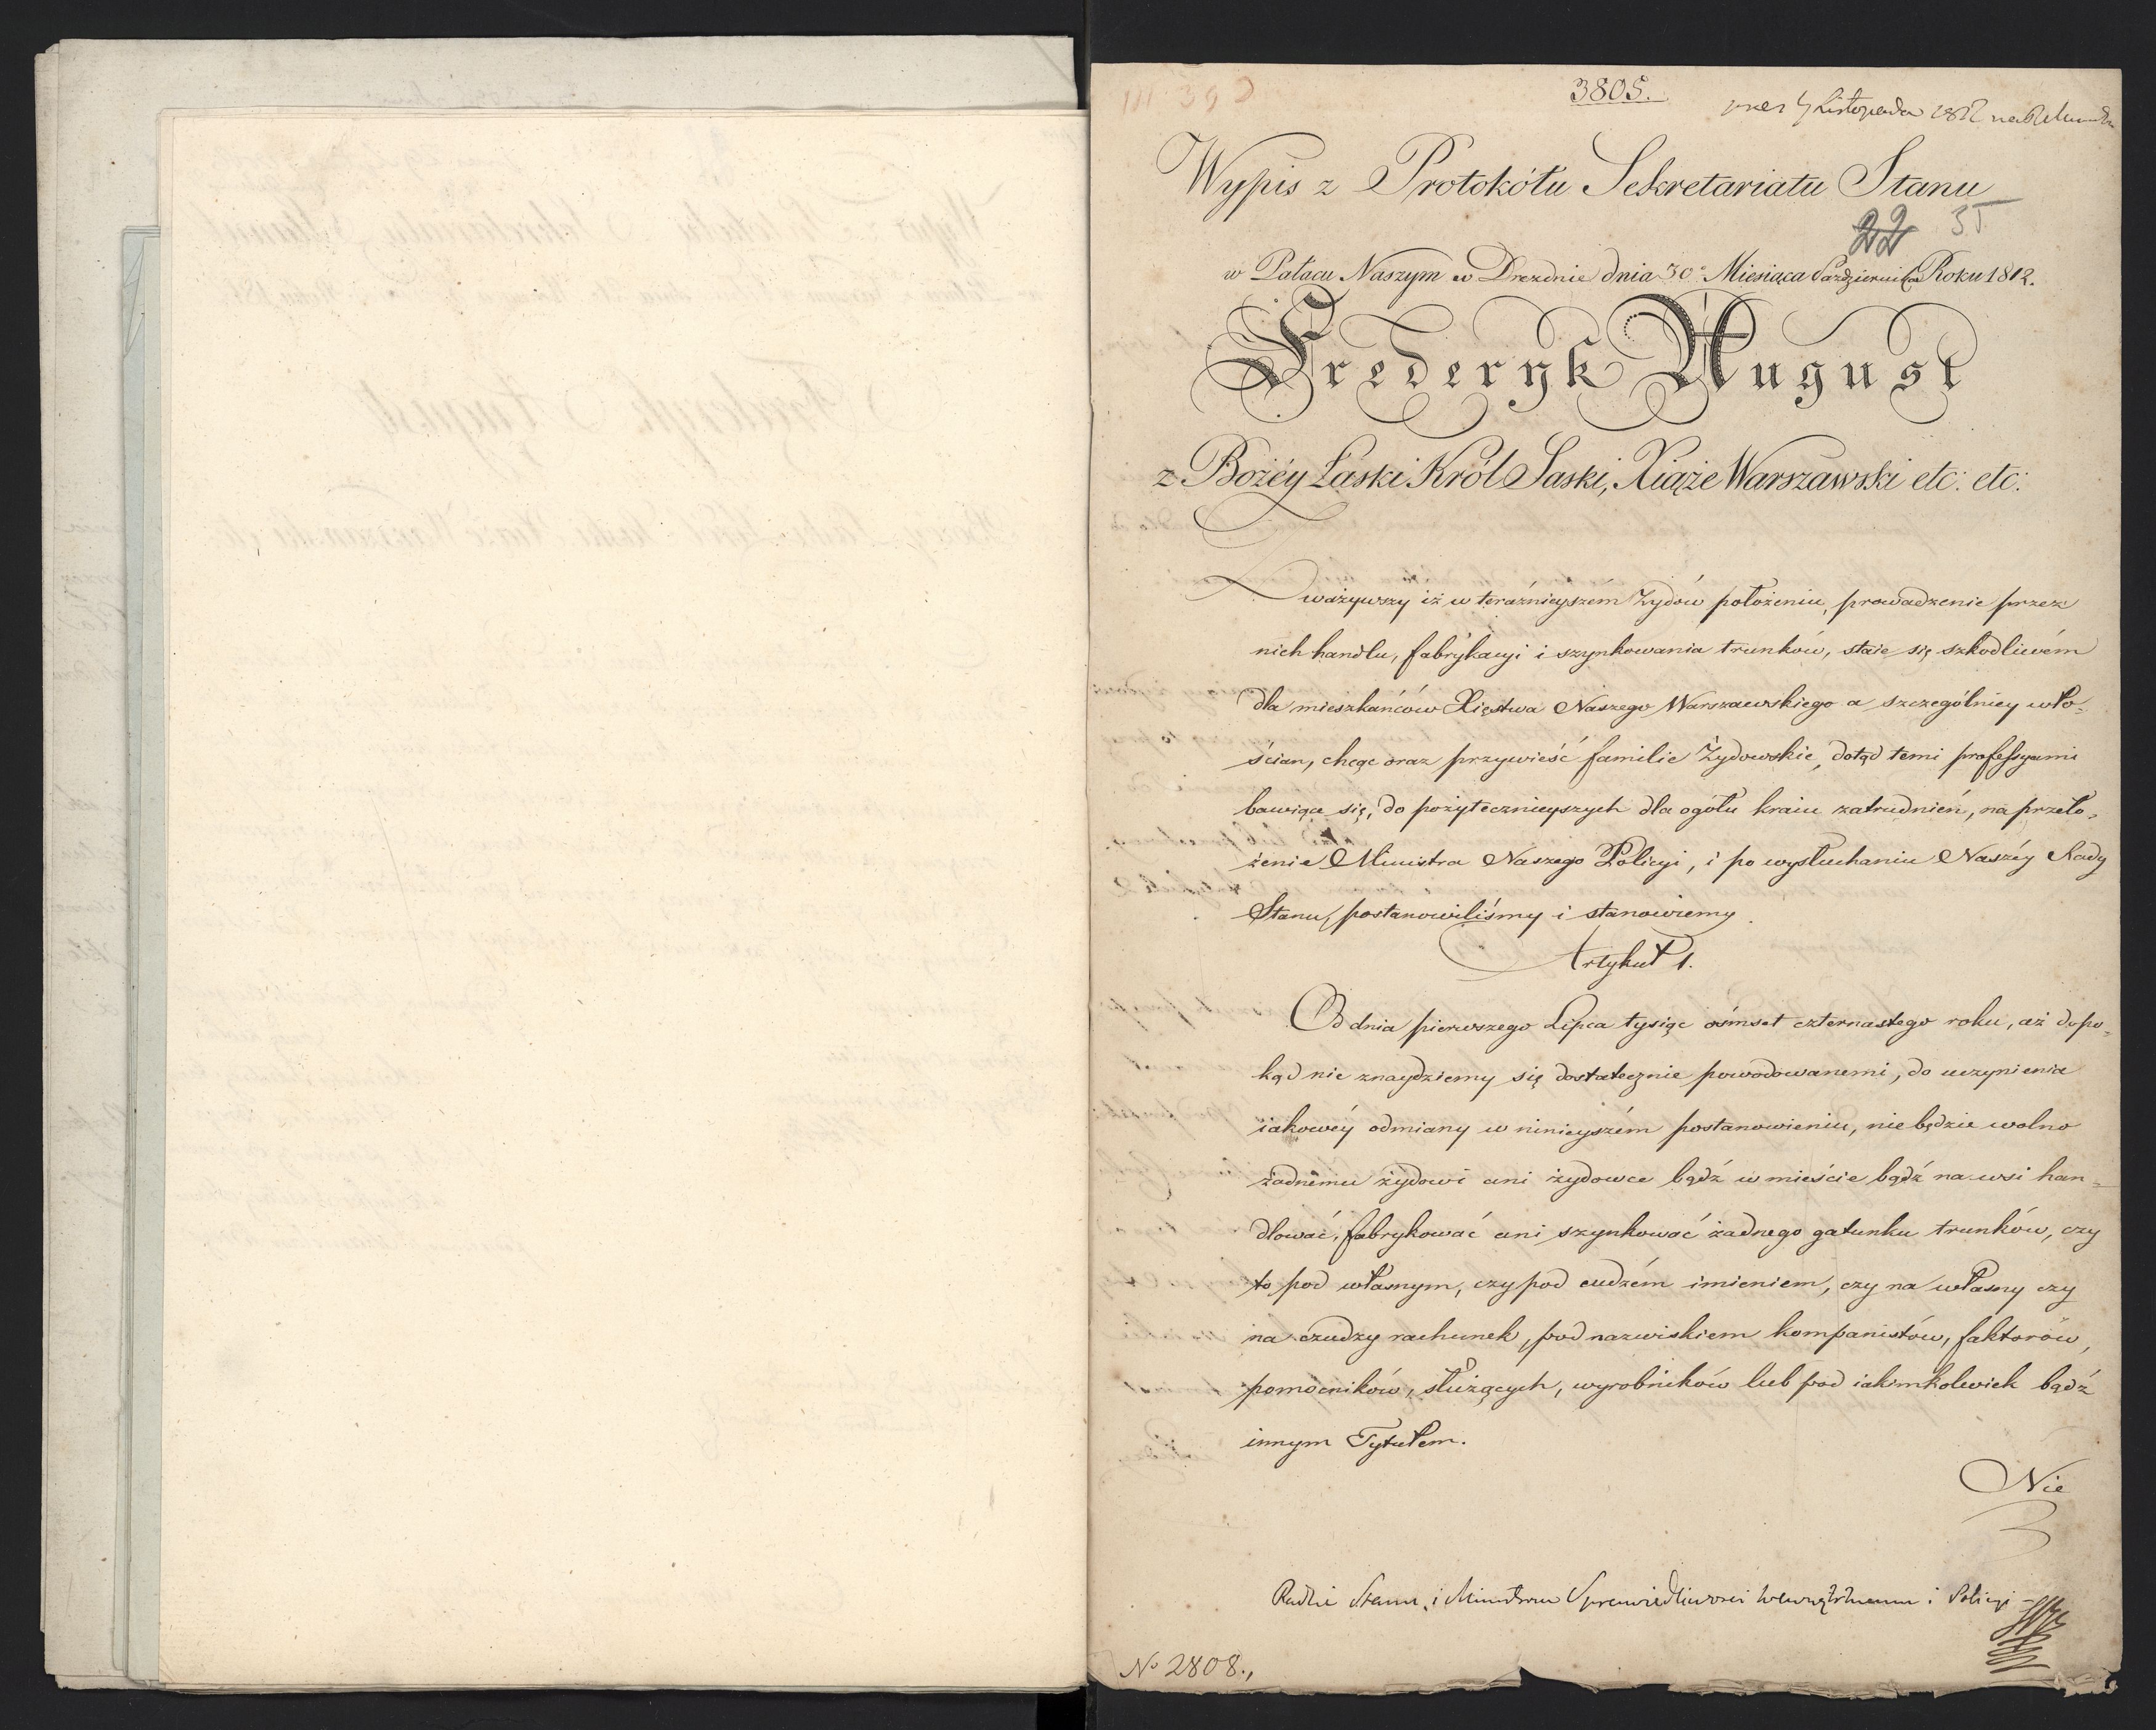 3805.
Listopada 1812
Wypis z Protokółu Sekretariatu Stanu
22 35
w Pałacu Naszym w Dreznie dnia 30º Miesiąca Października Roku 1812.
Frederyk August
z Bożéy Łaski Król Saski, Xiąże Warszawski etc: etc:
Zważywszy iż w teráznieyszém Żydów położeniu, prowadzenie przez
nich handlu, fabrykacyi i szynkowania trunków, staie się szkodliwém
dla mieszkańców Xięstwa Naszego Warszawskiego a szczególniey wło-
ścian, chcąc oraz przywieść familie Żydowskie, dotąd temi professyami
bawiące się, do pożytecznieyszych dla ogółu kraiu zatrudnień, na przeło-
żenie Ministra Naszego Policyi, i po wysłuchaniu Naszéy Rady
Stanu, postanowiliśmy i stanowiemy.
Artykuł 1.
Od dnia pierwszego Lipca tysiąc ośmset czternastego roku, aż dopo-
kąd nie znaydziemy się dostatecznie powodowanemi, do uczynienia
iakowéy odmiany w ninieyszém postanowieniu, nie będzie wolno
żadnému żydowi ani żydowce bądź w mieście bądź na wsi han-
dlować, fabrykować ani szynkować żadnego gatunku trunków, czy
to pod własnym, czy pod cudzém imieniem, czy na własny czy
na czudzy rachunek, pod nazwiskiem kompanistów, faktorów,
pomocników, służących, wyrobników lub pod iakimkolwiek bądź
innym Tytułem.
Nie
Radzie Stanu, i Ministrom Sprawiedliwości Wewnętrznemu i Policyi
Nº 2808.,